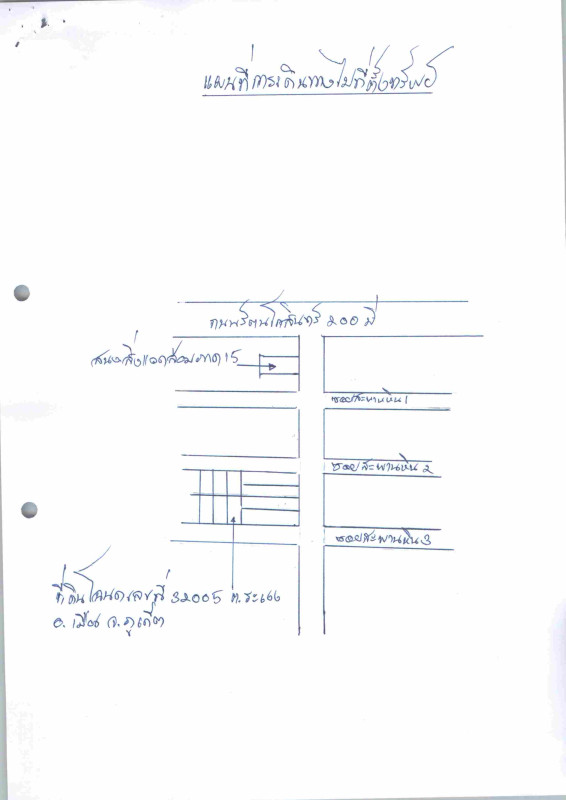 แผนที่การเดินทางไปที่ตั้งทรัพย์
ถนนรัตนโกสินทร์ 200 ปี
สนง.สิ่งแวดล้อมภาค 15
ซอยสะพานหิน 1
ซอยสะพานหิน 2
ซอยสะพานหิน 3
ที่ดินโฉนดเลขที่ 32005 ต.ระแงง
อ.เมือง จ.ภูเก็ต